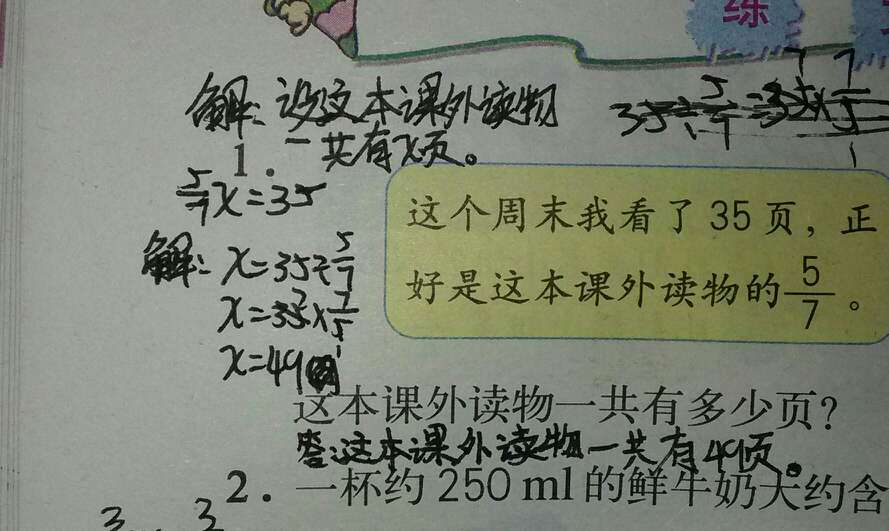 练
解:设这本课外读物
35÷5/7=35×7/5
1. 一共有x页。
5/7x=35
这个周末我看了 35 页，正
解: x=35÷5/7
好是这本课外读物的5/7。
x=35×7/5
x=49
这本课外读物一共有多少页?
答:这本课外读物一共有49页。
2. 一杯约 250 ml 的鲜牛奶大约含
3 3